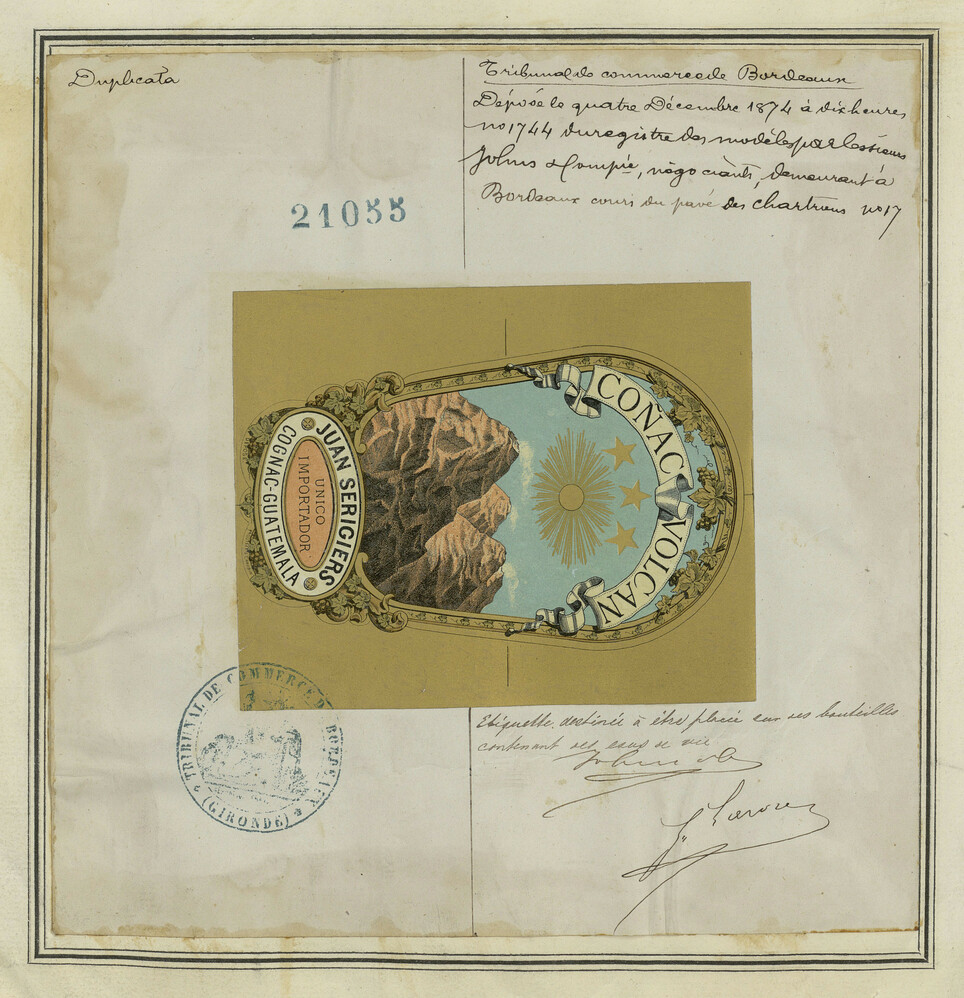 Duplicata
Tribunal de commerce de Bordeaux
Déposé le quatre Décembre 1874 à dix heures
no 1744 du registre des modèles par les sieurs
Johns & Compie, négociants, demeurant à
Bordeaux cours du pavé des chartrons no 17
21055
COÑAC VOLCAN
JUAN SERIGIERS
UNICO
IMPORTADOR
COGNAC-GUATEMALA
TRIBUNAL DE COMMERCE DE BORDEAUX
(GIRONDE)
Etiquette destinée à être placée sur ses bouteilles
contenant ses eaux de vie